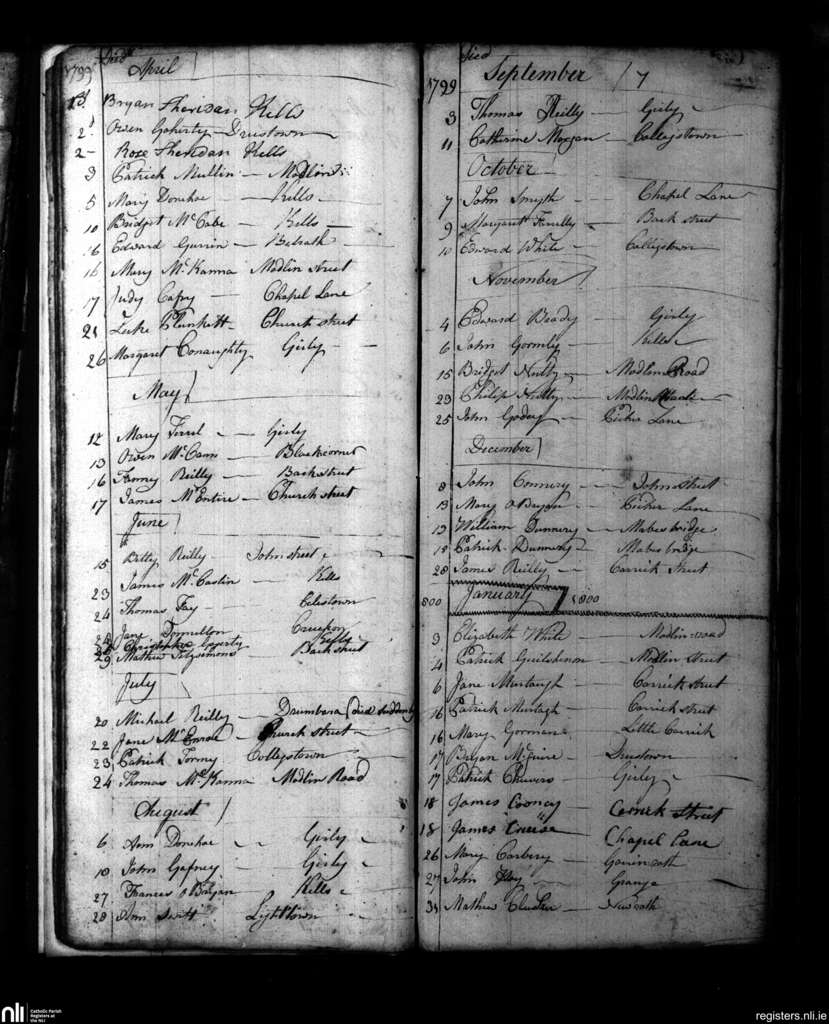 Died
1799 April
1st Bryan Sheridan Kells
2d Owen Goherty - Drustown
2 - Rose Sheridan Kells
3 Patrick Mullin - Modlin
5 Mary Donohoe - Kells -
10 Bridget McCabe - Kells -
16 Edward Gurrin - Belrath -
16 Mary McKanna Modlin street
17 Judy Cafry - Chapel Lane
21 Luke Plunkett - Church street
26 Margaret Conaughty Girly -
May
12 Mary Terrel - Girly
13 Owen McCann - Blackcornet
16 Fanny Reilly - Back street
17 James McEntire - Church street
June
15 Betty Reilly - John street
23 James McCastin - Kells
24 Thomas Fay - Calestown
28 Jany Donnellon -
Christopher Kells
29 Mathew Fitzsimons Back street
July
20 Michael Reilly - Drumbara (died suddenly
22 Jane McEnroe - Church street -
23 Patrick Tormy - Collegstown
24 Thomas McKanna Modlin Road
August
6 Ann Donohoe - - Girly -
10 John Gafney - Girly -
27 Frances o Bryan Kells -
28 Ann Swift Lightown -
Died
1799 September / 7
3 Thomas Reilly - Girly -
11 Catherine Morgan - Collegstown
October
7 John Smyth - Chapel Lane
9 Margaret Farrelly - Back street
10 Edward White - Collegstown
November
4 Edward Brady - Girly
6 John Gormly - Kells -
15 Bridget Nulty - Modlin Road
29 Philip Nulty - Modlin
25 John Godsy - Pitcher Lane
December
8 John Connery - John street
13 Mary O Bryan - Pitcher Lane
13 William Dunnery - Mabes bridge
15 Patrick Dunnery - Mabes bridge
28 James Reilly - Carrick Street
1800 January 1800
3 Elizabeth White - Modlin road
4 Patrick - Modlin street
6 Jane Murtaugh - Carrick street
16 Patrick Murtagh - Carrick street
16 Mary Gorman - Little Carrick
17 Bryan McGuire - Drustown
17 Patrick Chivers - Girly -
18 James Cooney - Carrick Street
18 James Cruise Chapel Lane
26 Mary Carberry -
27 John - Grange
31 Mathew Clusker - Newrath
nli Catholic Parish
Registers at
the NLI
registers.nli.ie